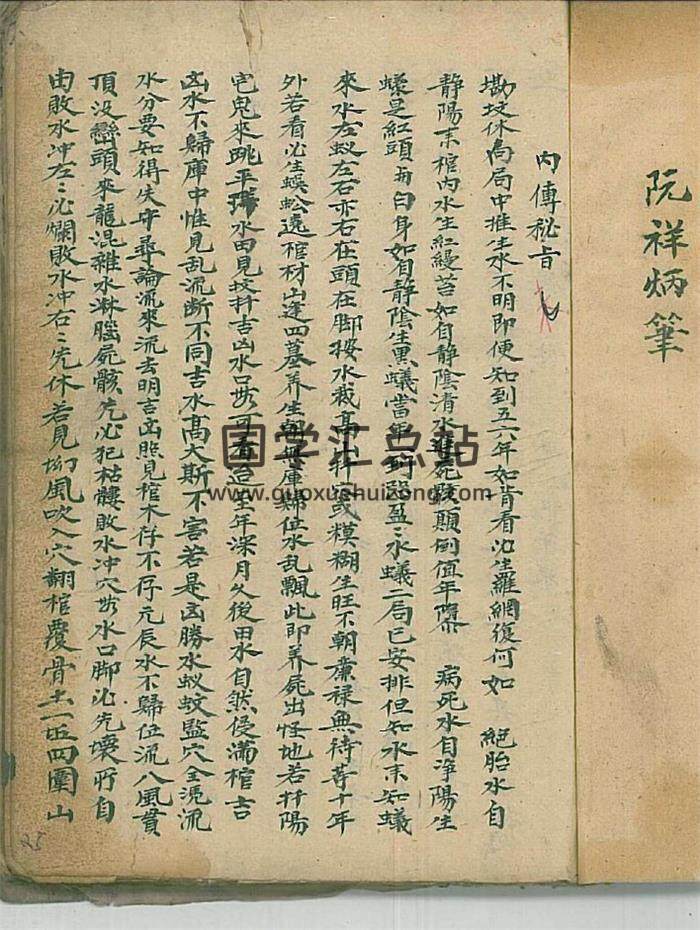 阮祥炳筆
內傳秘旨
墈坟休尚局中推生水不明即便知到五六年如肯看必生羅網復何如 絕胎水自
靜陽来棺內水生紅縵苔如自靜陰清水死骸顛倒值年 病死水自淨陽生
蟻是紅頭白身如自靜陰生黑蟻當盈〻水蟻二局已安排但知水未知蟻
來水左蚁左右亦右在頭在脚按水裁高扦或糢糊生旺不朝廉禄無待等十年
外若看必生蜈蚣遶棺材山逢四墓养生朝無庫位水乱飄此即养屍出怪地若扦陽
宅鬼來跳平水田見坟扦吉凶水口可看造年深月久後田水自然侵滿棺吉
凶水不歸庫中惟見乱流断不同吉水高大斯不害若是凶勝水蚁蚊監穴全凴流
水分要如得失守尋論流來流去明吉凶照見棺木存不存元辰水不歸位流八風貫
頂没巒頭來龍混雜水淋腦屍骸先必犯枯髏敗水冲穴水口脚必先壞所自
由敗水冲左〻必爛敗水冲右〻先休若見坳風吹入穴翻棺覆骨土一正四圍山
25
国学汇总站
www.guoxuehuizong.com